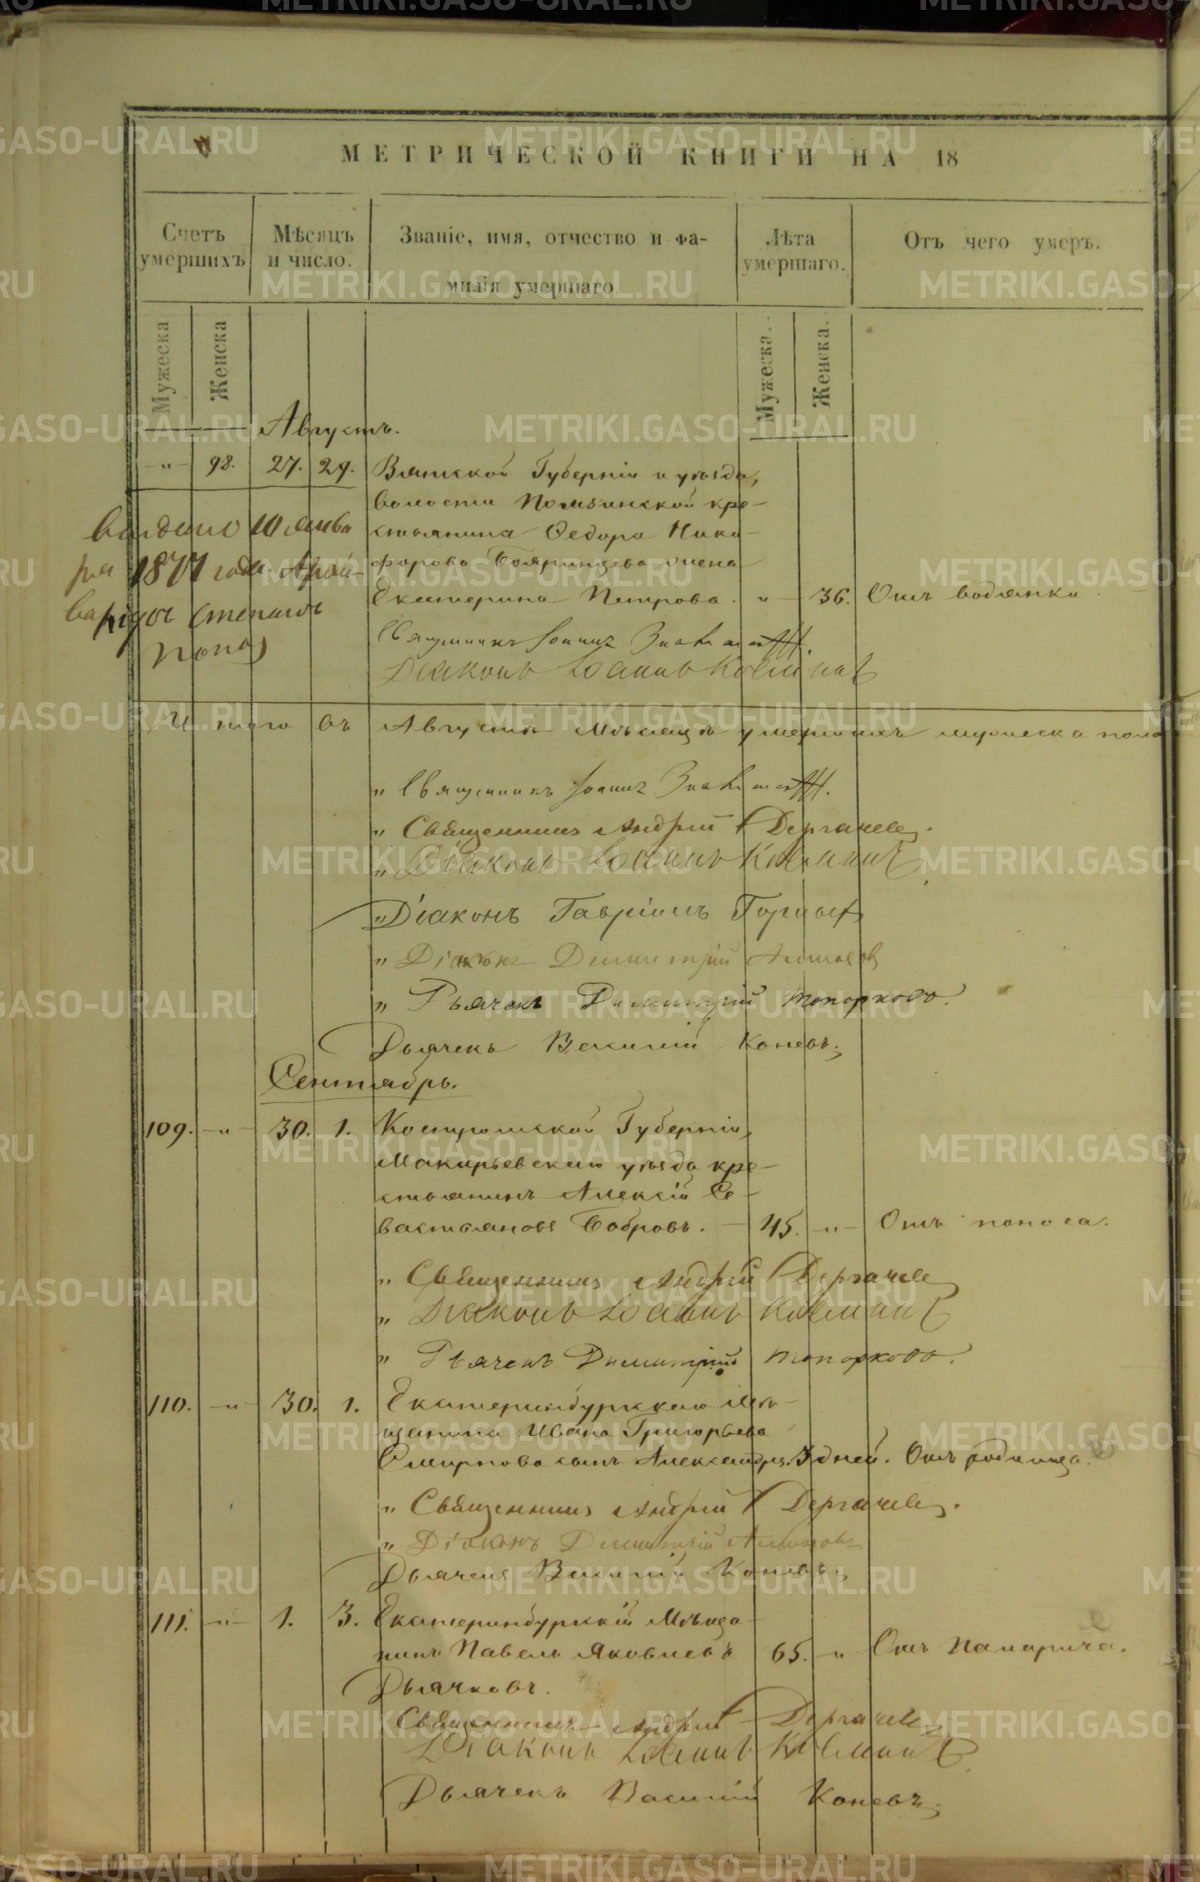 МЕТРИЧЕСКОЙ КНИГИ НА 18
Счетъ умершихъ
Мѣсяцъ и число.
Званіе, имя, отчество и фамилія умершаго
Лѣта умершаго.
Отъ чего умеръ.
Мужеска
Женска
Мужеска.
Женска.
Августъ.
„ 98. 27. 29. Вятской Губерніи и уѣзда,
волости кре-
стьянина Федора Ники-
форова Бояринцева жена
Екатерина Петрова. „ 36. Отъ водянки
выдано 10 янва
ря 1877 года.
Степанъ
Попов
Священникъ Іоаннъ
Діаконъ Іоаннъ
И того въ Августѣ мѣсяцѣ умершихъ мужеска пола
„ Священникъ Іоаннъ
„ Священникъ Андрій Дергачевъ.
„ Діаконъ Іоаннъ
„ Діаконъ Гавріилъ
„ Діаконъ Димитрій
„ Дьячекъ Димитрій Топорковъ.
Дьячекъ Василій Коневъ.
Сентябрь.
109. „ 30. 1. Костромской Губерніи,
Макарьевскаго уѣзда кре-
стьянинъ Алексій Се-
вастьяновъ Бобровъ. 45. „ Отъ поноса.
„ Священникъ Андрій Дергачевъ
„ Діаконъ Іоаннъ
„ Дьячекъ Димитрій Топорковъ.
110. „ 30. 1. Екатеринбургскаго мѣ-
щанина Ивана Григорьева
Смирнова сынъ Александръ. 3 дней. Отъ родимца.
„ Священникъ Андрій Дергачевъ.
„ Діаконъ Димитрій
Дьячекъ Василій Коневъ.
111. „ 1. 3. Екатеринбургскій Мѣща-
нинъ Павелъ Яковлевъ 65. „ Отъ
Дьячковъ.
Священникъ Андрій Дергачевъ
Діаконъ Іоаннъ
Дьячекъ Василій Коневъ.
METRIKI.GASO-URAL.RU